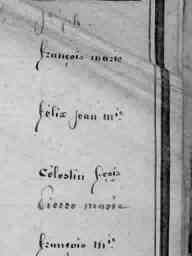 joseph
françois marie
félix jean m.is
célestin fçois
Pierre marie
françois m.is